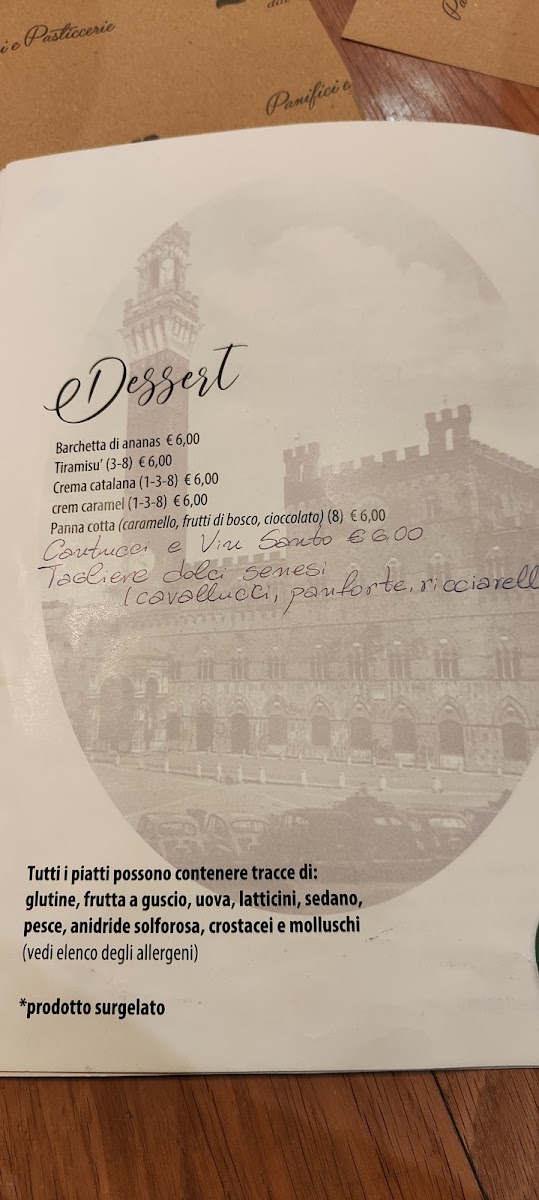 i e Pasticcerie
Panifici e
Dessert
Barchetta di ananas € 6,00
Tiramisu' (3-8) € 6,00
Crema catalana (1-3-8) € 6,00
crem caramel (1-3-8) € 6,00
Panna cotta (caramello, frutti di bosco, cioccolato) (8) € 6,00
Cantucci e Vin Santo € 6.00
Tagliere dolci senesi
(cavallucci, panforte, ricciarell
Tutti i piatti possono contenere tracce di:
glutine, frutta a guscio, uova, latticini, sedano,
pesce, anidride solforosa, crostacei e molluschi
(vedi elenco degli allergeni)
*prodotto surgelato